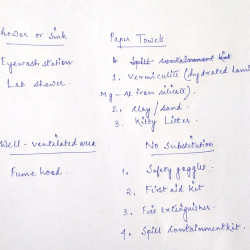 Shower or sink
Eyewash station
Lab shower
Paper Towels
1. Vermiculite (hydrated lami
Mg-Al iron silicate).
2. Clay / sand.
3. Kitty Litter.
Well-ventilated area
Fume hood.
No Substitution
1. Safety goggles
2. First aid kit
3. Fire extinguisher.
4. Spill containment kit.